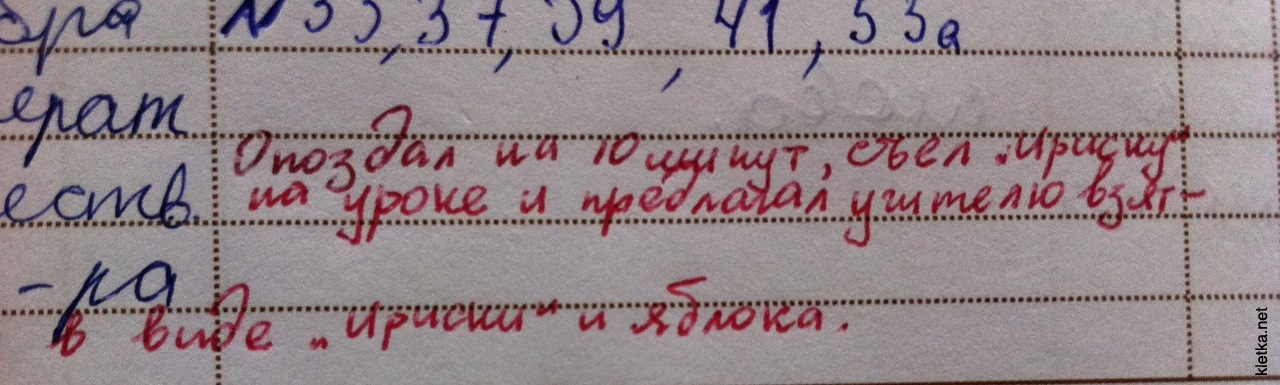 бра № 35, 37, 39, 41, 53а
ерат
Опоздал на 10 минут, съел „Ириску"
еств. на уроке и предлагал учителю взят-
-ра
в виде „Ириски" и яблока.
kletka.net